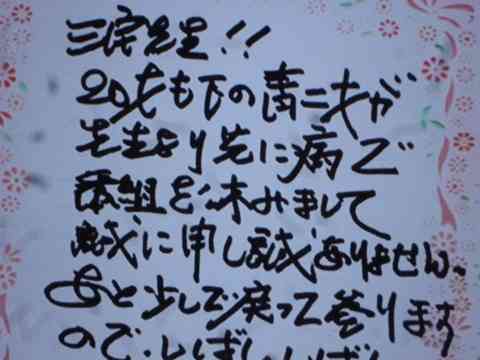 三宅先生!!
20才も下の青二才が
先生より先に病で
番組を休みまして
誠に申し訳ありません。
あと少しで戻って参ります
ので、しばし、しば